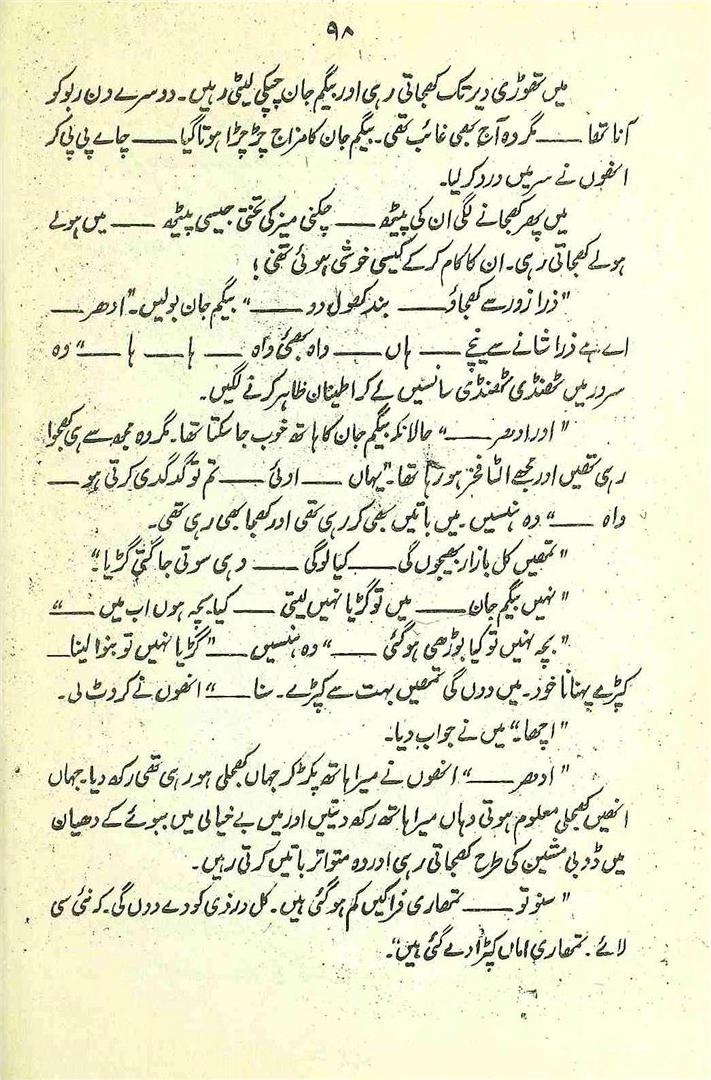 ۹۸
میں تھوڑی دیر تک کھجاتی رہی اور بیگم جان چپکی لیٹی رہیں۔ دوسرے دن ربو کو
آنا تھا —— مگر وہ آج بھی غائب تھی۔ بیگم جان کا مزاج چڑچڑا ہوتا گیا —— چاے پی پی کر
انھوں نے سر میں درد کر لیا۔
میں پھر کھجانے لگی ان کی پیٹھ —— چکنی میز کی تختی جیسی پیٹھ —— میں ہولے
ہولے کھجاتی رہی۔ ان کا کام کر کے کیسی خوشی ہوئی تھی!
"ذرا زور سے کھجاؤ —— بند کھول دو ——" بیگم جان بولیں۔ "ادھر ——
اے ہے ذرا شانے سے نیچے —— ہاں —— واہ بھئی واہ —— ہا —— ہا ——" وہ
سرور میں ٹھنڈی ٹھنڈی سانسیں لے کر اطینان ظاہر کرنے لگیں۔
"اور ادھر ——" حالانکہ بیگم جان کا ہاتھ خوب جا سکتا تھا۔ مگر وہ مجھ سے ہی کھجوا
رہی تھیں اور مجھے الٹا فخر ہو رہا تھا۔ "یہاں —— اوئی —— تم تو گدگدی کرتی ہو ——
واہ ——" وہ ہنسیں۔ میں باتیں بھی کر رہی تھی اور کھجا بھی رہی تھی۔
"تمھیں کل بازار بھیجوں گی —— کیا لوگی —— وہی سوتی جاگتی گڑیا۔"
"نہیں بیگم جان —— میں تو گڑیا نہیں لیتی —— کیا بچہ ہوں اب میں ——"
"بچہ نہیں تو کیا بوڑھی ہو گئی ——" وہ ہنسیں —— "گڑیا نہیں تو ببوا لینا ——
کپڑے پہنانا خود۔ میں دوں گی تمھیں بہت سے کپڑے۔ سنا ——" انھوں نے کروٹ لی۔
"اچھا۔" میں نے جواب دیا۔
"ادھر ——" انھوں نے میرا ہاتھ پکڑ کر جہاں کھجلی ہو رہی تھی رکھ دیا۔ جہاں
انھیں کھجلی معلوم ہوتی وہاں میرا ہاتھ رکھ دیتیں اور میں بے خیالی میں ببوئے کے دھیان
میں ڈوبی مشین کی طرح کھجاتی رہی اور وہ متواتر باتیں کرتی رہیں۔
"سنو تو —— تمھاری فراکیں کم ہو گئی ہیں۔ کل درزی کو دے دوں گی۔ کہ نئی سی
لائے۔ تمھاری اماں کپڑا دے گئی ہیں"۔